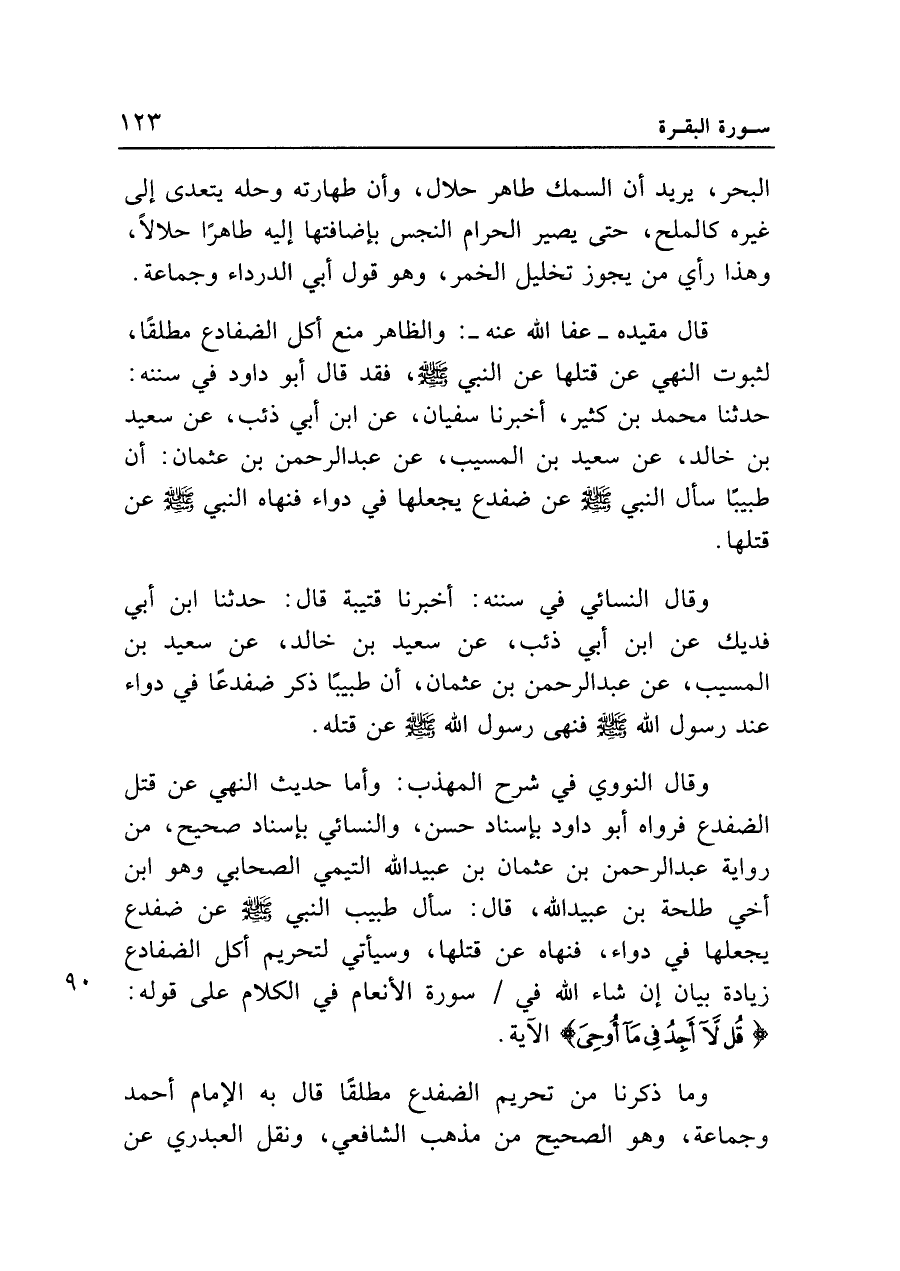 سورة البقرة ١٢٣
البحر، يريد أن السمك طاهر حلال، وأن طهارته وحله يتعدى إلى
غيره كالملح، حتى يصير الحرام النجس بإضافتها إليه طاهرًا حلالاً،
وهذا رأي من يجوز تخليل الخمر، وهو قول أبي الدرداء وجماعة.
قال مقيده ـ عفا الله عنه ـ: والظاهر منع أكل الضفادع مطلقًا،
لثبوت النهي عن قتلها عن النبي ﷺ، فقد قال أبو داود في سننه:
حدثنا محمد بن كثير، أخبرنا سفيان، عن ابن أبي ذئب، عن سعيد
بن خالد، عن سعيد بن المسيب، عن عبدالرحمن بن عثمان: أن
طبيبًا سأل النبي ﷺ عن ضفدع يجعلها في دواء فنهاه النبي ﷺ عن
قتلها.
وقال النسائي في سننه: أخبرنا قتيبة قال: حدثنا ابن أبي
فديك عن ابن أبي ذئب، عن سعيد بن خالد، عن سعيد بن
المسيب، عن عبدالرحمن بن عثمان، أن طبيبًا ذكر ضفدعًا في دواء
عند رسول الله ﷺ فنهى رسول الله ﷺ عن قتله.
وقال النووي في شرح المهذب: وأما حديث النهي عن قتل
الضفدع فرواه أبو داود بإسناد حسن، والنسائي بإسناد صحيح، من
رواية عبدالرحمن بن عثمان بن عبيدالله التيمي الصحابي وهو ابن
أخي طلحة بن عبيدالله، قال: سأل طبيب النبي ﷺ عن ضفدع
يجعلها في دواء، فنهاه عن قتلها، وسيأتي لتحريم أكل الضفادع
زيادة بيان إن شاء الله في / سورة الأنعام في الكلام على قوله: ٩٠
﴿ قُل لَّآ أَجِدُ فِى مَآ أُوحِىَ﴾ الآية.
وما ذكرنا من تحريم الضفدع مطلقًا قال به الإمام أحمد
وجماعة، وهو الصحيح من مذهب الشافعي، ونقل العبدري عن